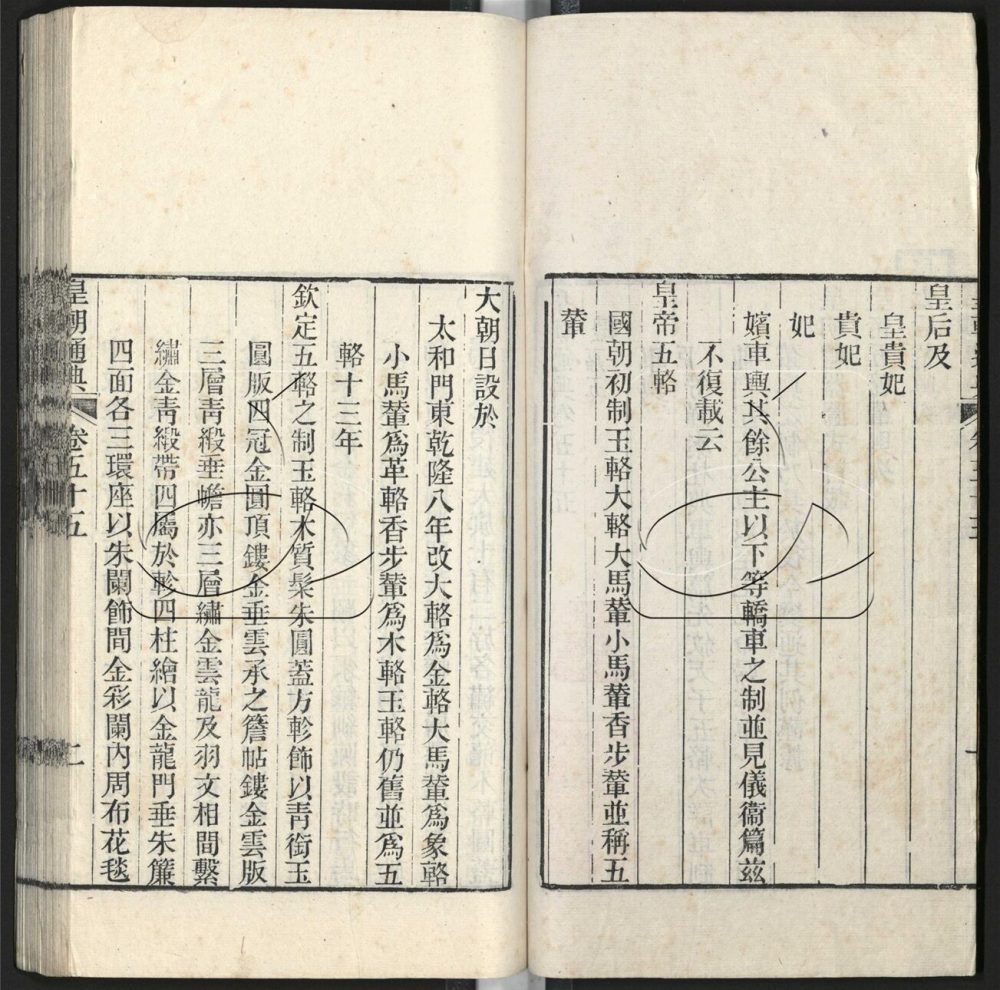 皇后及
皇貴妃
貴妃
妃
嬪車輿其餘公主以下等轎車之制並見儀衞篇兹
不復載云
皇帝五輅
國朝初制玉輅大輅大馬輦小馬輦香步輦並稱五
輦
大朝日設於
太和門東乾隆八年改大輅爲金輅大馬輦爲象輅
小馬輦爲革輅香步輦爲木輅玉輅仍舊並爲五
輅十三年
欽定五輅之制玉輅木質髹朱圓蓋方軫飾以青銜玉
圓版四冠金圓頂鏤金垂雲承之簷帖鏤金雲版
三層青緞垂幨亦三層繡金雲龍及羽文相間繫
繡金青緞帶四屬於軫四柱繪以金龍門垂朱簾
四面各三環座以朱闌飾間金彩闌內周布花毯
皇朝通典 卷五十五 二